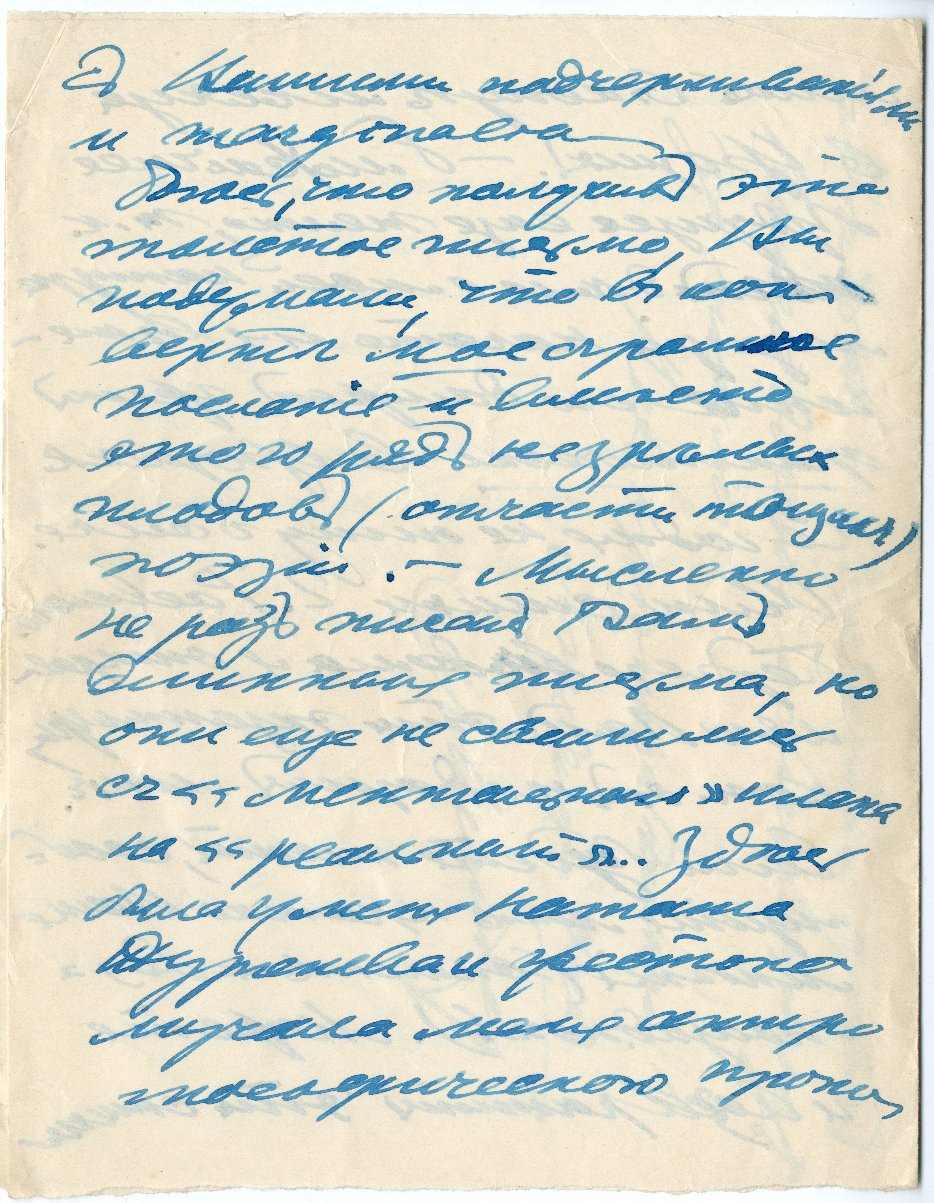 съ Вашими подчеркиваніями
и
Боюсь, что получивъ это
толстое письмо, Вы
подумали, что въ кон-
вертѣ мое огромное
посланіе и вместо
этого рядъ незрѣлыхъ
плодовъ (отчасти тощихъ)
поэзіи. — Мысленно
не разъ писалъ Вамъ
длинныя письма, но
они еще не свалились
съ «ментальнаго» плана
на «реальный».. Здѣсь
была у меня Наташа
и жестоко
мучала меня антро
пософическою пропа-